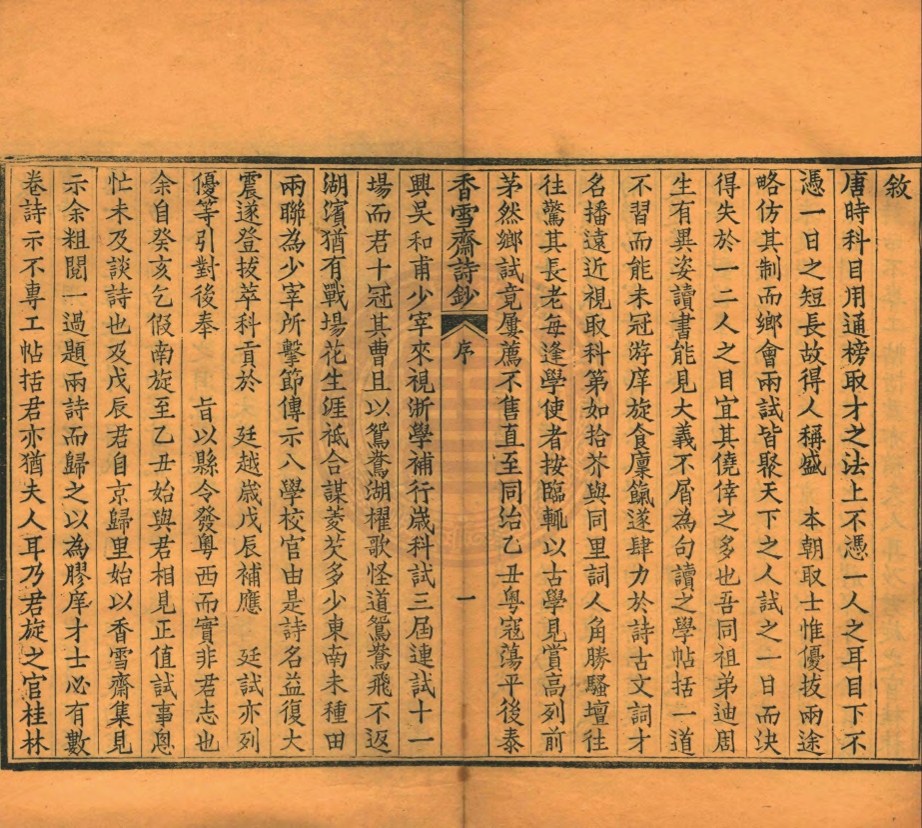 敘
唐時科目用通榜取才之法上不憑一人之耳目下不
憑一日之短長故得人稱盛　本朝取士惟優拔兩途
略仿其制而鄉會兩試皆聚天下之人試之一日而決
得失於一二人之目宜其僥倖之多也吾同祖弟迪周
生有異姿讀書能見大義不屑為句讀之學帖括一道
不習而能未冠游庠旋食廩餼遂肆力於詩古文詞才
名播遠近視取科第如拾芥與同里詞人角勝騷壇往
往驚其長老每逢學使者按臨輒以古學見賞高列前
茅然鄉試竟屢薦不售直至同治乙丑粵寇蕩平後泰
香雪齋詩鈔　序　一
興吳和甫少宰來視浙學補行歲科試三屆連試十一
場而君十冠其曹且以鴛鴦湖櫂歌怪道鴛鴦飛不返
湖濱猶有戰場花生涯祗合謀菱芡多少東南未種田
兩聯為少宰所擊節傳示八學校官由是詩名益復大
震遂登拔萃科貢於　廷越歲戊辰補應　廷試亦列
優等引對後奉　旨以縣令發粵西而實非君志也
余自癸亥乞假南旋至乙丑始與君相見正值試事恖
忙未及談詩也及戊辰君自京歸里始以香雪齋集見
示余粗閱一過題兩詩而歸之以為膠庠才士必有數
卷詩示不專工帖括君亦猶夫人耳乃君旋之官桂林